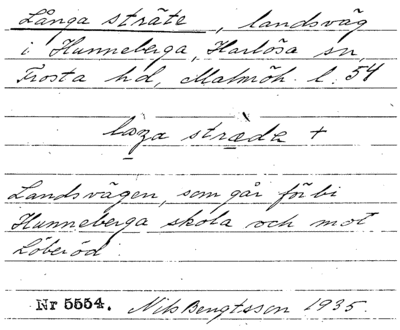 Långa sträte, landsväg
i Hunneberga, Harlösa sn,
Frosta hd, Malmöh. l. 54
Landsvägen, som går förbi
Hunneberga skola och mot
Löberöd.
Nr 5554. Nils Bengtsson 1935.